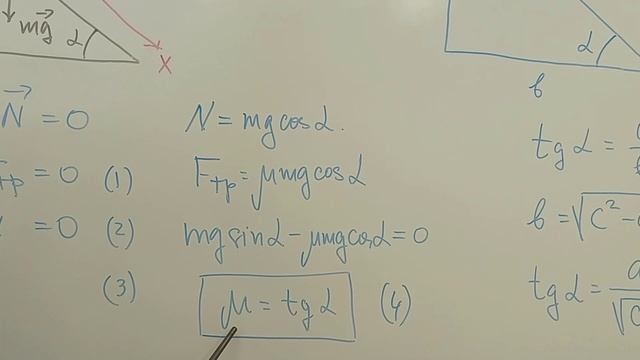 mg α
X
α
b
N = 0
N = mg cos α.
Fтр = 0 (1)
Fтр = μmg cos α
= 0 (2)
mg sin α − μmg cos α = 0
(3)
μ = tg α (4)
tg α =
b = √c² −
tg α = a/√c